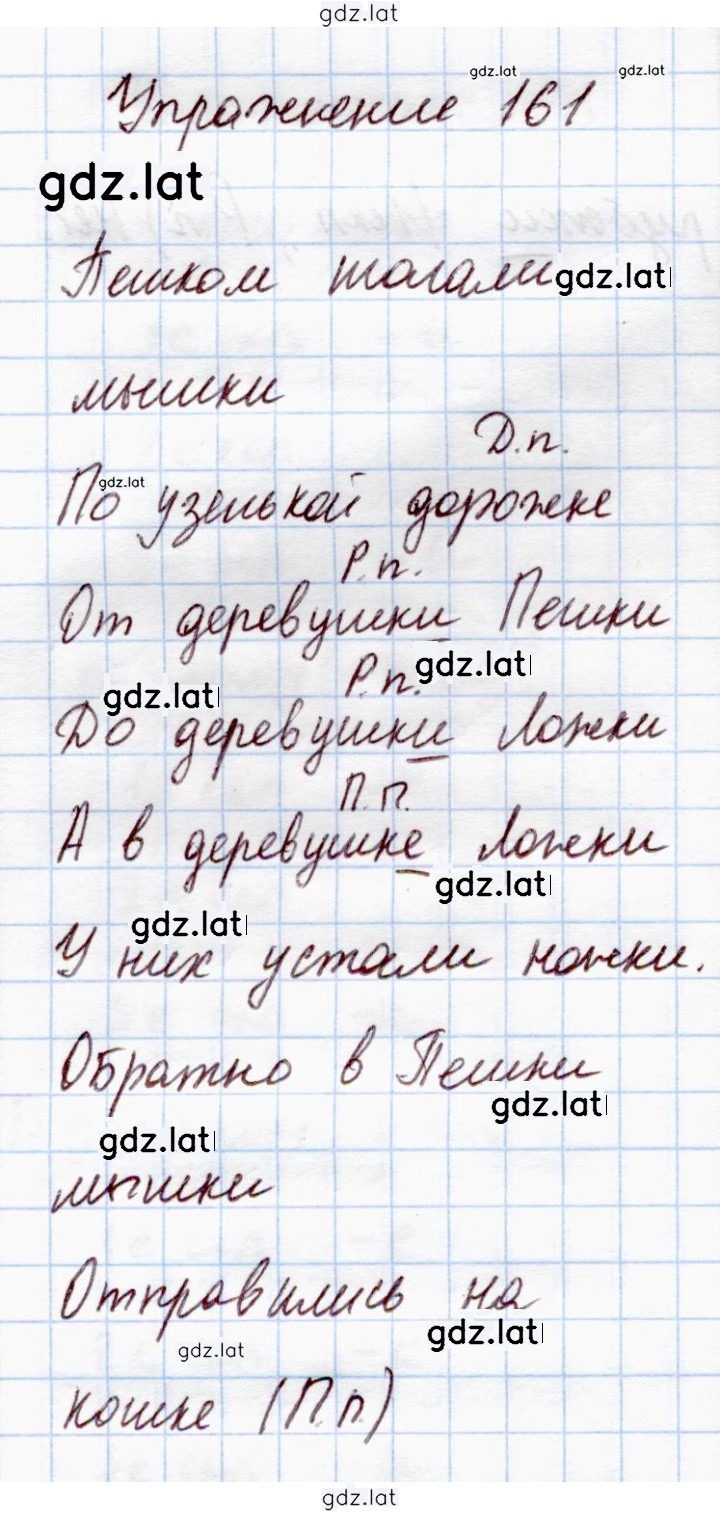 gdz.lat
gdz.lat gdz.lat
Упражнение 161
gdz.lat
Пешком шагали gdz.lat
мышки
Д.п.
gdz.lat
По узенькой дорожке
Р.п.
От деревушки Пешки
gdz.lat
Р.п.
gdz.lat
До деревушки Ложки
П.п.
А в деревушке Ложки
gdz.lat
gdz.lat
У них устали ножки.
Обратно в Пешки
gdz.lat
gdz.lat
мышки
Отправились на
gdz.lat
gdz.lat
кошке (П.п.)
gdz.lat